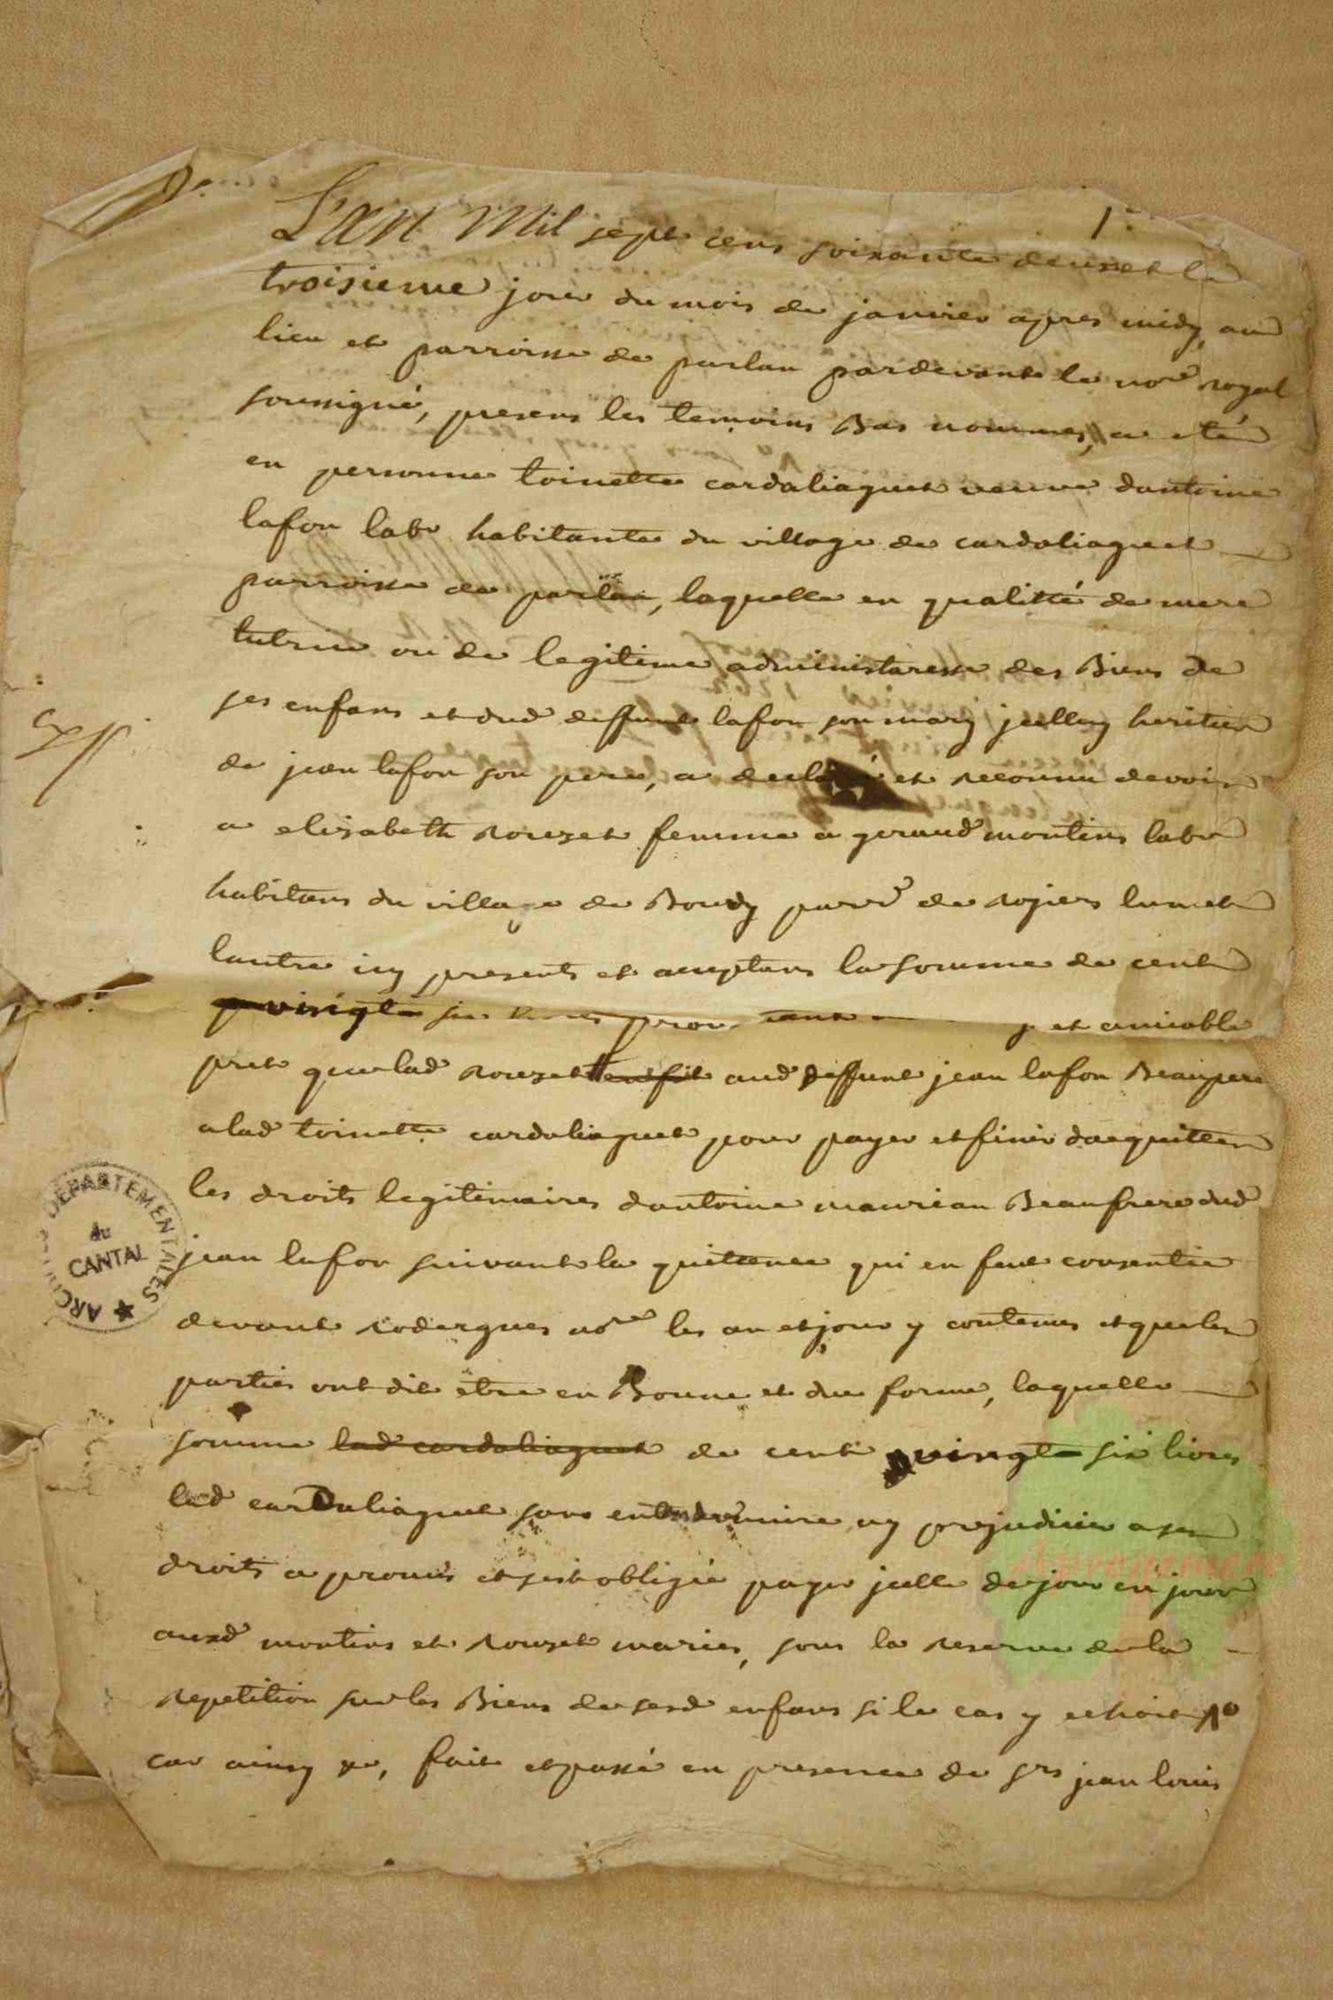 1.
L'an Mil sept cens soixante deux et le
troisieme jour du mois de janvier apres midy, au
lieu et parroisse de parlan pardevant le no.re royal
soussigné, presens les temoins Bas nommes, a eté
en personne toinette cardaliaguet veuve dantoine
lafon labr habitante du village de cardaliaguet
parroisse de parlan, laquelle en qualitté de mere
tutrice ou de legitime administaresse des Biens de
ses enfans et dud deffunt lafon son mary jcelluy heritier
de jean lafon son pere, a declaré et reconnu devoir
a elizabeth rouzet femme a geraud montins labr
habitans du village de Boudy parr.e de rojiers lun et
lautre icy presents et acceptans la somme de cent
vingt six livres et amiable
pret que lad rouzet fit aud deffunt jean lafon Beaupere
a lad toinette cardaliaguet pour payer et finir dacquitter
les droits legitimaires dantoine mauriau Beaufrere dud
jean lafon suivant la quittance qui en fut consentie
devant roderques no.re les an et jour y contenus et que les
parties ont dit être en Bonne et due forme, laquelle
somme lad cardaliaguet de cent vingt six livres
lad cardaliaguet sans entendre nuire ny prejudicier a ses
droits a promis et sest obligée payer jcelle de jour en jour
auxd montins et rouzet maries, sous la reserve de la
repetition sur les Biens de sesd enfans si le cas y echoit
car ainsy &c, fait et passé en presence de srs jean louis
exp
ARCHIVES DEPARTEMENTALES
du
CANTAL